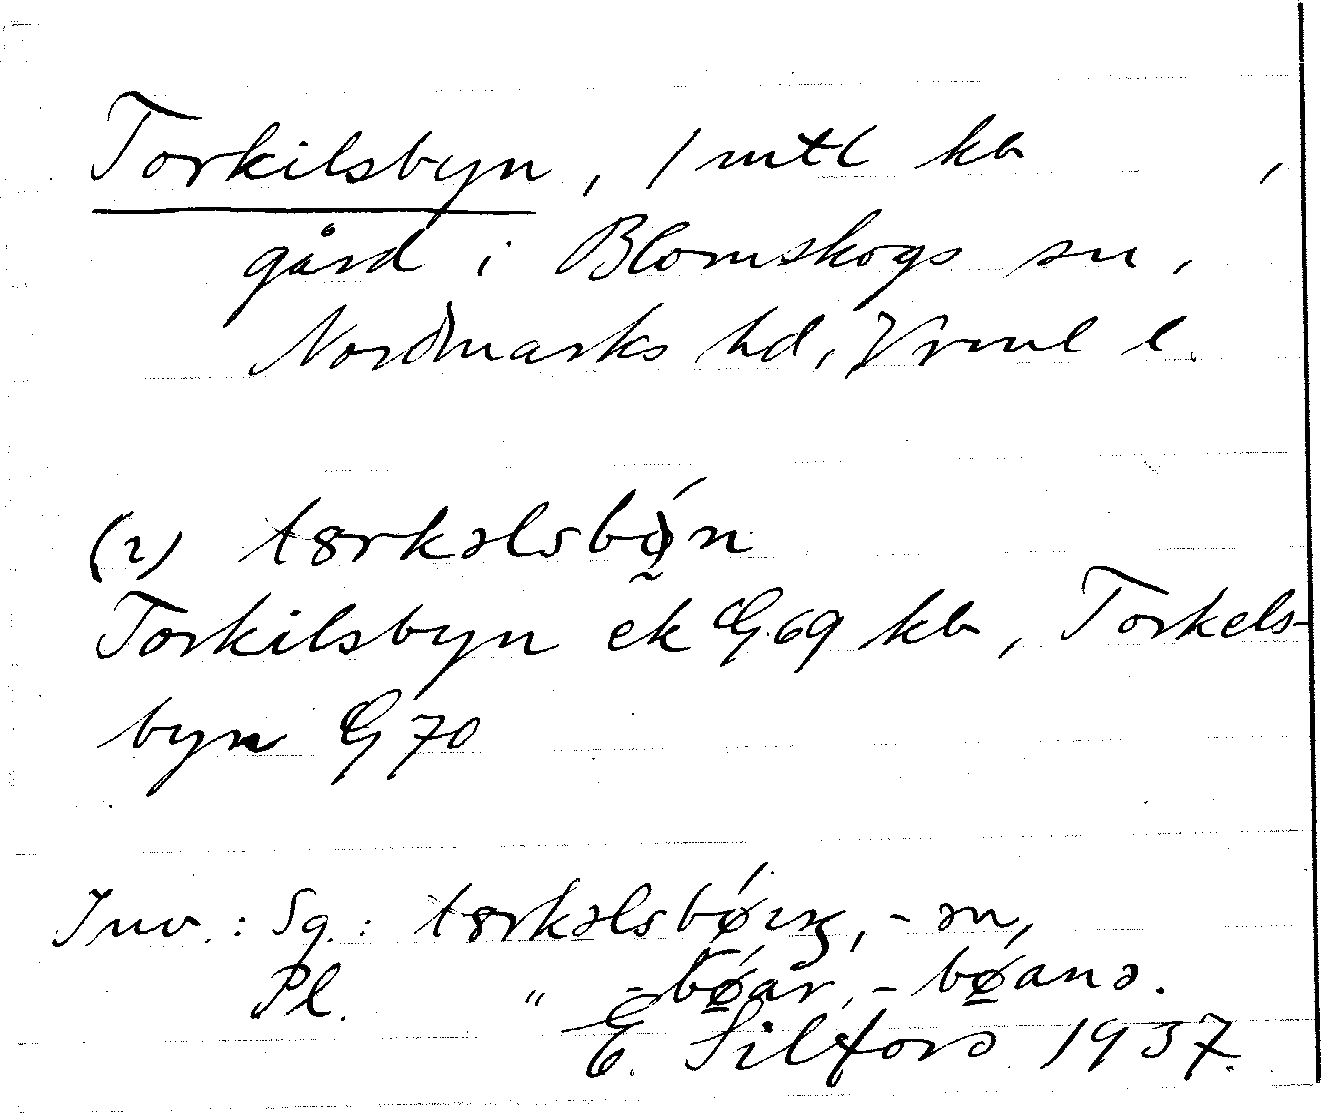 Torkilsbyn, 1 mtl kb ,
gård i Blomskogs sn,
Nordmarks hd, Vrml l.
(2) tɤrkəlsbǿn
Torkilsbyn ek G69 kb, Torkels-
byn G70
Inv.: Sg.: tɤrkəlsbǿıŋ, -ən,
Pl. " -bǿar, -bǿanə.
E. Silfors 1937.